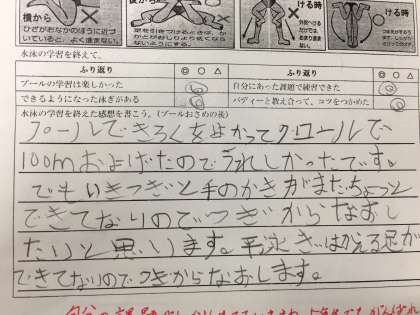 横から
ひざがおなかのほうに近づ
いていると、よく進まない。
後から
足を引きつけるときは、か
かとがおしりより低くなら
ないようにする。
ける時
ける時
水泳の学習を終えて、
ふり返り ◎ ○ △ ふり返り ◎ ○ △
プールの学習は楽しかった 自分にあった課題で練習できた
できるようになった泳ぎがある バディーと教え合って、コツをつかめた
水泳の学習を終えた感想を書こう。(プールおさめの後)
プールできろくをはかってクロールで
100mおよげたのでうれしかったです。
でもいきつぎと手のかきがまだちょっと
できてなりのでつぎからなおし
たいと思います。平泳ぎはかえる足が
できてないのでつぎからなおします。